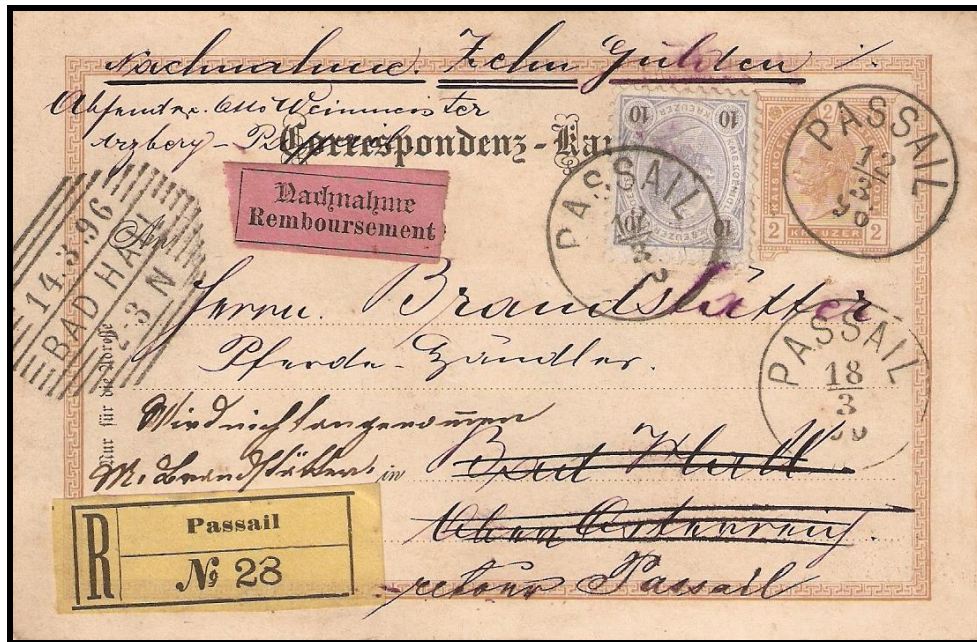 Nachnahme. Zehn Gulden
Absender. Otto Weinmeister
Arzberg - Passail
Correspondenz-Kar
Nachnahme
Remboursement
10 10
KREUZER
10 10
2
2 KREUZER 2
PASSAIL
12
3
PASSAIL
12
3
14.3.96
BAD HALL
2-3 N
An
Herrn Brandstätter
Pferde-Händler
PASSAIL
18
3
Nur für die Adresse
Wird nicht angenommen
M. Brandstätter
in Bad Hall
Ober Österreich.
retour Passail
R
Passail
№ 28